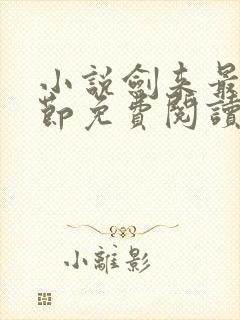 小説劍来最
節免費閱讀
小離影